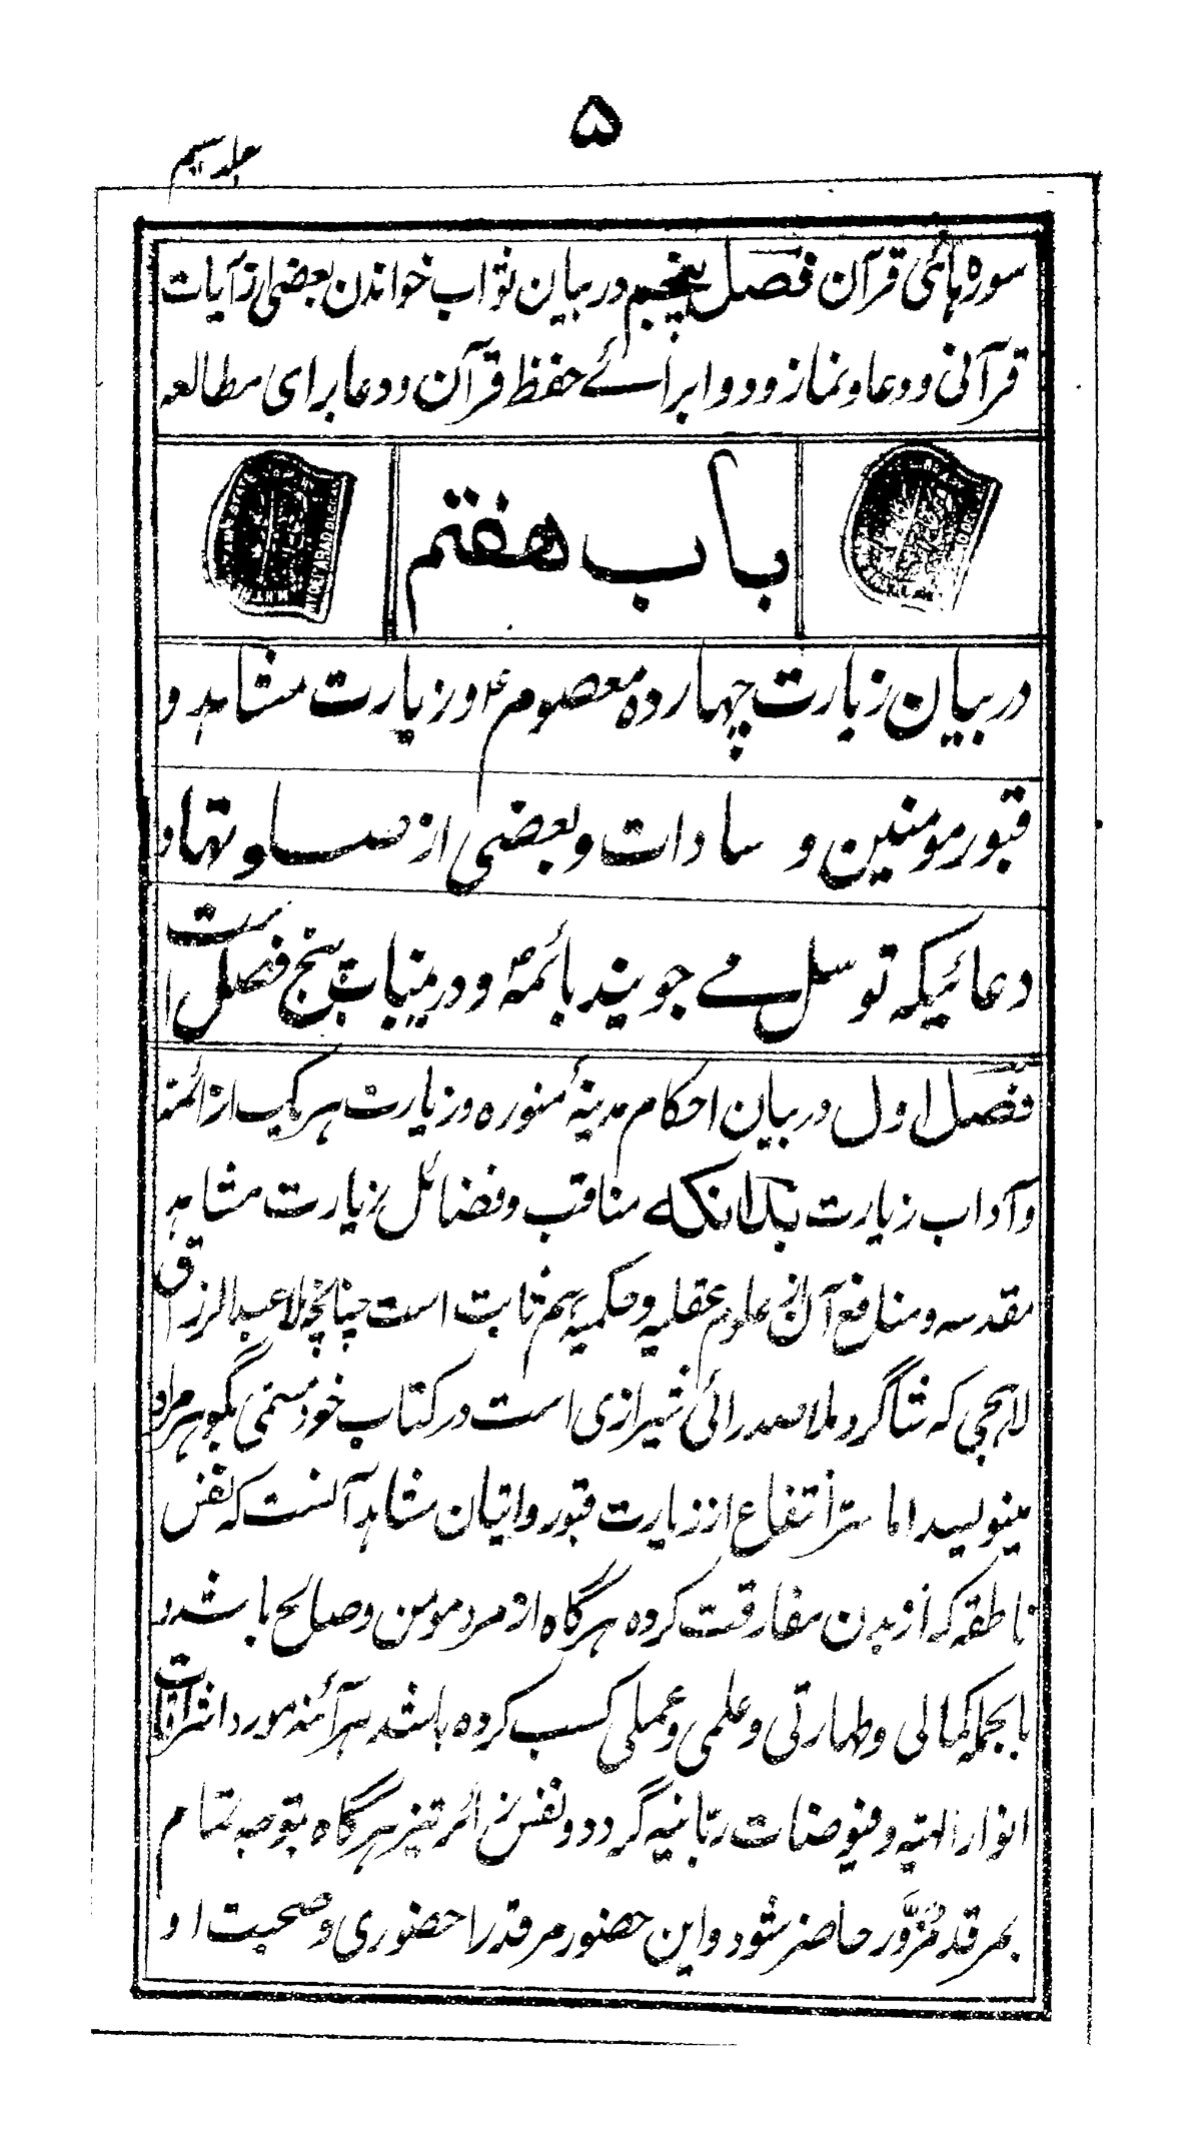 ۵
جلد سیم
سوره‌های قرآن فصل پنجم در بیان ثواب خواندن بعضی از آیات
قرآنی و دعا و نماز و دوا برائے حفظ قرآن و دعا برای مطالعه
باب هفتم
در بیان زیارت چهارده معصوم ع و زیارت مشاهد و
قبور مومنین و سادات و بعضی از صلوتها و
دعائیکه توسل مے جویند بائمهٔ ع و درینباب پنج فصل است
فصل اول در بیان احکام مدینهٔ منوره و زیارت هریک از ائمه
و آداب زیارت بدانکه مناقب و فضائل زیارت مشاهد
مقدسه و منافع آن از علوم عقلیه و حکمیه هم ثابت است چنانچه ملا عبدالرزاق
لاهجی که شاگرد ملا صدرائی شیرازی است در کتاب خود مسمی بگوهر مراد
مینویسد اما سرّ انتفاع از زیارت قبور و اتیان مشاهد آنست که نفس
ناطقه که از بدن مفارقت کرده هرگاه از مرد مومن و صالح باشد و
بالجمله کمالی و طهارتی و علمی و عملی کسب کرده باشد هر آئنه مورد اشراقات
انوار الهیه و فیوضات ربّانیه گردد و نفس زائر نیز هرگاه بتوجه تمام
بمرقد مُزوَّر حاضر شود و این حضور مرقد را حضوری و صحبت او